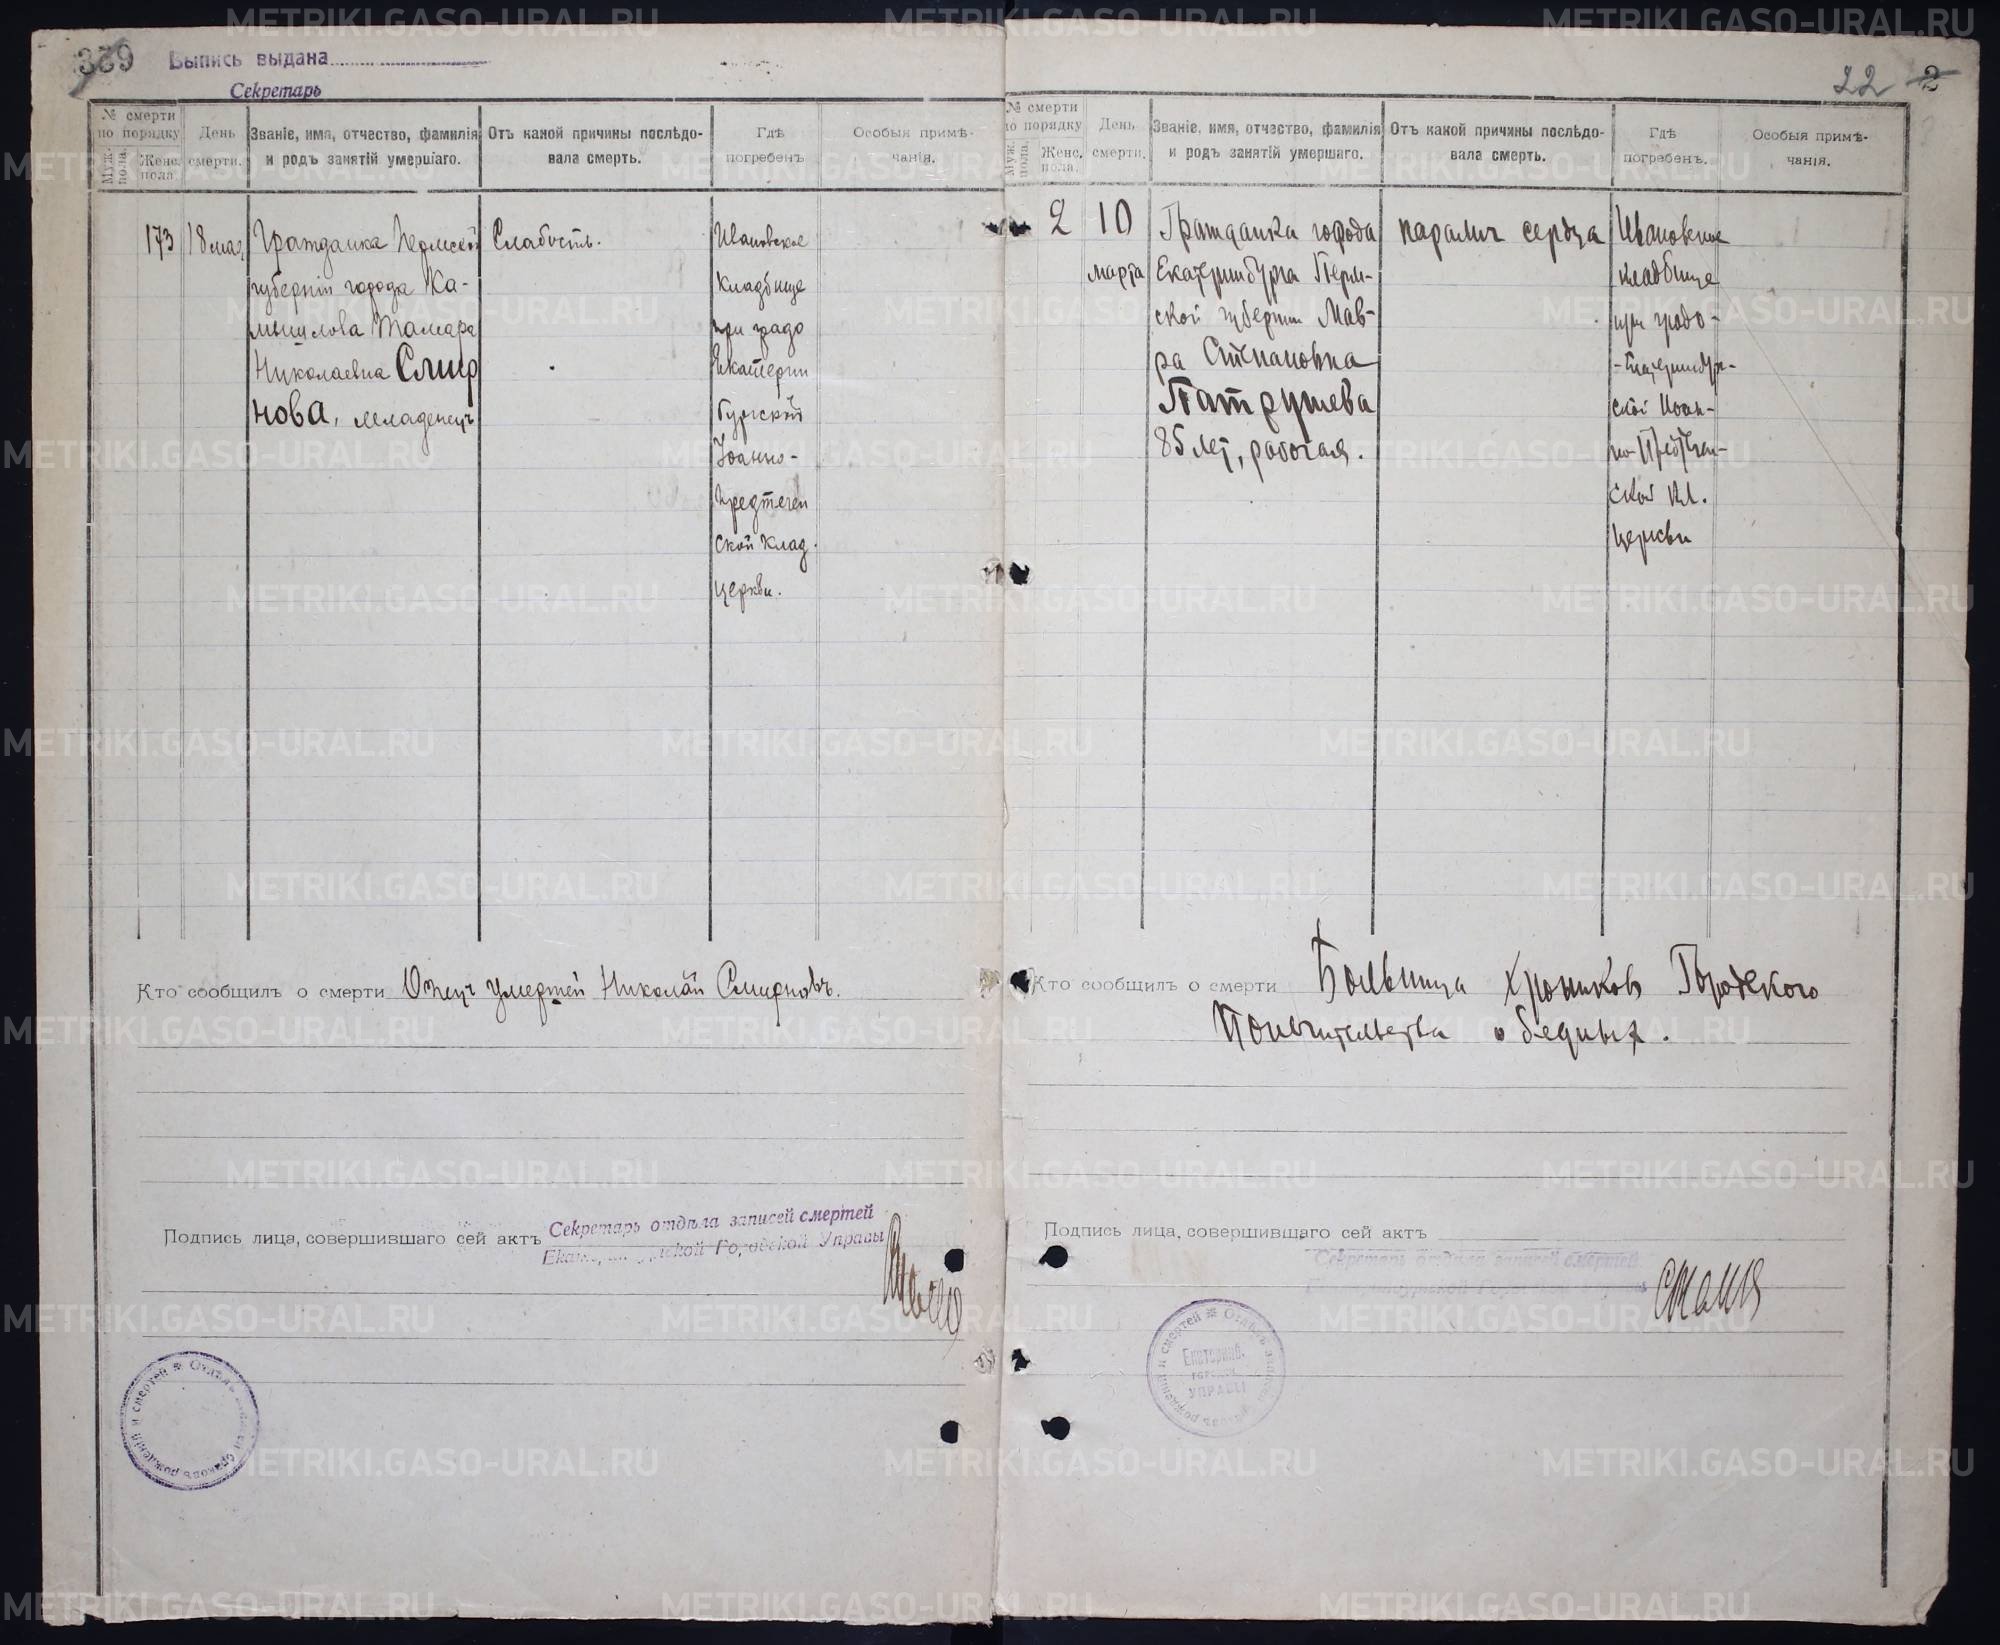 339
Выпись выдана
Секретарь
№ смерти по порядку
Муж. пола.
Женс. пола.
День смерти.
Званіе, имя, отчество, фамилія и родъ занятій умершаго.
Отъ какой причины послѣдовала смерть.
Гдѣ погребенъ.
Особыя примѣчанія.
173
18 мая,
Гражданка Пермской
губерніи города Ка-
мышлова Тамара
Николаевна Смир
нова, младенецъ
Слабость.
Ивановское
Кладбище
при градо
Екатерин
бургской
Іоанно-
Предтечен
ской Клад.
церкви.
Кто сообщилъ о смерти Отец умершей Николай Смирновъ.
Подпись лица, совершившаго сей актъ
Секретарь отдѣла записей смертей
Екатеринбургской Городской Управы
Отдѣлъ браковъ рожденій и смертей
22 2
№ смерти по порядку
Муж. пола.
Женс. пола.
День смерти.
Званіе, имя, отчество, фамилія и родъ занятій умершаго.
Отъ какой причины послѣдовала смерть.
Гдѣ погребенъ.
Особыя примѣчанія.
2
10
марта
Гражданка города
Екатеринбурга Перм-
ской губернии Мав-
ра Степановна
Патрушева
85 лет, рабочая.
паралич сердца
Ивановское
кладбище
при градо-
-Екатеринбург-
ской Иоан-
но-Предтечен-
ской кл.
церкви
Кто сообщилъ о смерти Больница хроников Городского
Попечительства о бедных.
Подпись лица, совершившаго сей актъ
Секретарь отдѣла записей смертей
Екатеринбургской Городской Управы
Отдѣлъ записи браковъ рожденій и смертей
Екатеринб. городск. УПРАВЫ
METRIKI.GASO-URAL.RU